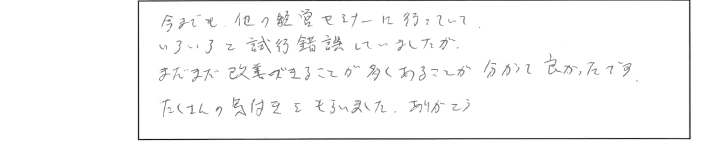 今までも、他の経営セミナーに行っていて、
いろいろと試行錯誤していましたが、
まだまだ改善できることが多くあることが分かって良かったです。
たくさんの気付きをもらいました。ありがとう